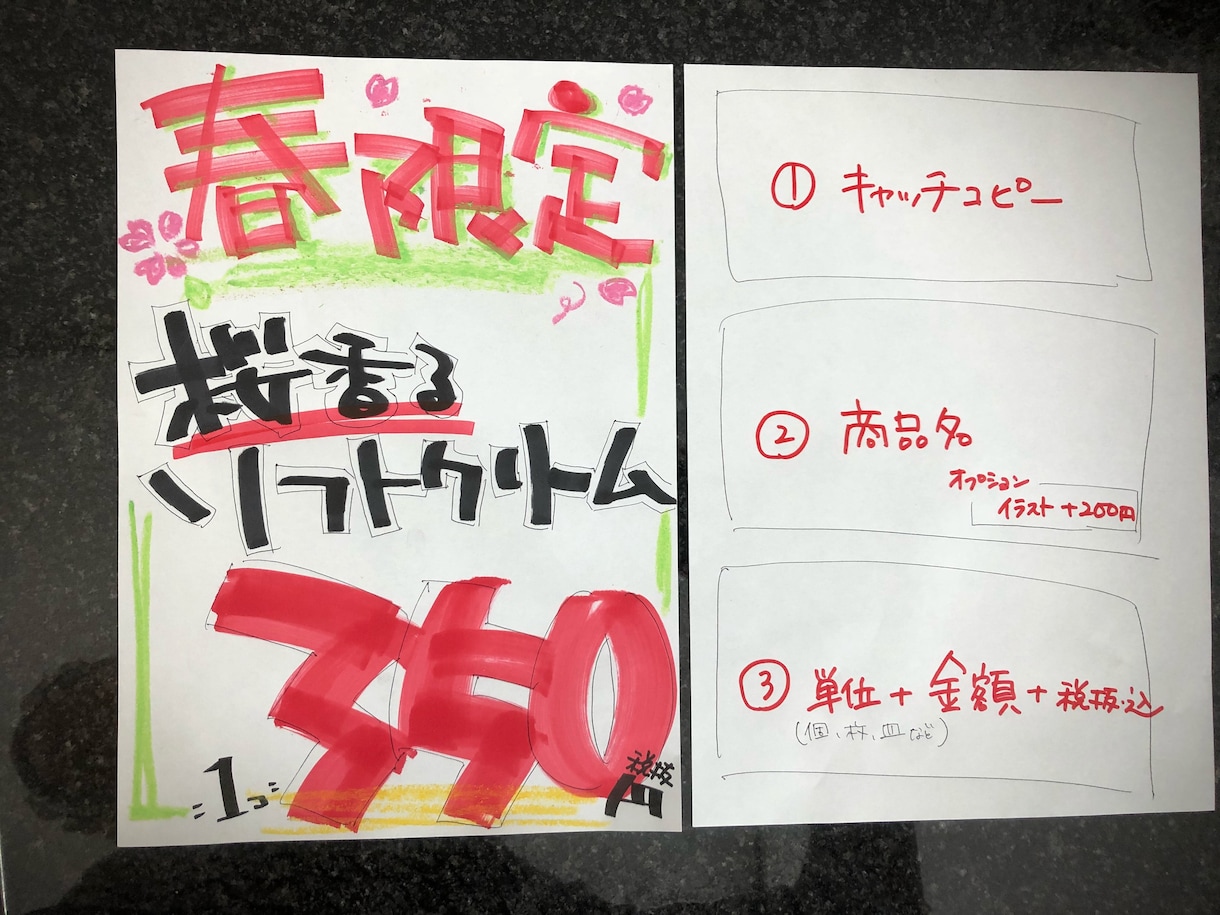 春限定
桜香る
ソフトクリーム
1コ
350
税抜
円
① キャッチコピー
② 商品名
オプション
イラスト+200円
③ 単位+金額+税抜・込
(個、枚、皿など)